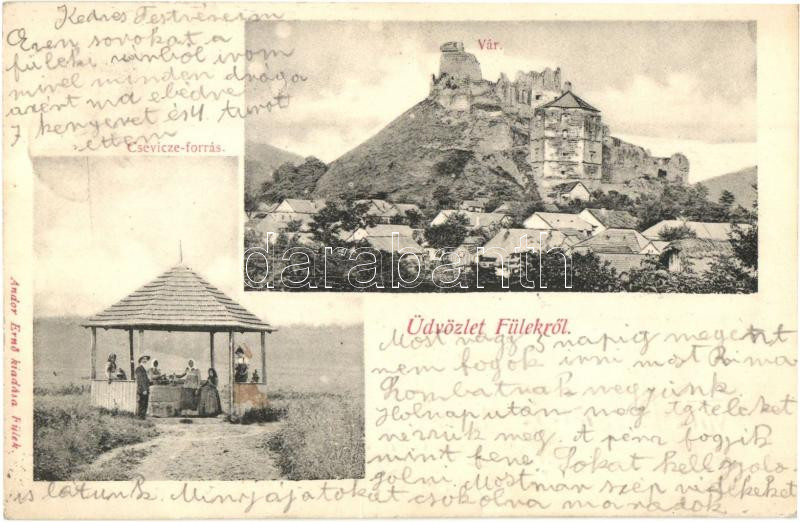 Kedves Testvéreim
Ezen sorokat a
füleki várból irom
mivel minden drága
azért ma ebédre
7 kenyeret és 4 turót
ettem
Vár.
Csevicze-forrás.
darabanth
Andor Ernő kiadása Fülek.
Üdvözlet Fülekről.
Most vagy 3 napig megent
nem fogok irni most Rima
Kombatnak megyünk
Holnap után meg
nézzük meg. A penz fogyik
mint fene. Sokat kell gyalo
golni. Most már szép vidékeket
is látunk. Mindnyájatokat csokolva maradok.